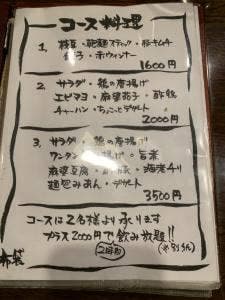 コース料理
1、枝豆・乾麺スティック・杉キムチ
餃子・赤ウィンナー
1600円
2、サラダ・鶏の唐揚げ
エビマヨ・麻婆茄子・酢鶏
チャーハン・ちょこっとデザート
2000円
3、サラダ・鶏の唐揚げ
ワンタン 揚げ・旨煮
麻婆豆腐・海老チリ
麺包みあん・デザート
3500円
コースは2名様より承ります
プラス2000円で飲み放題!!
2時間